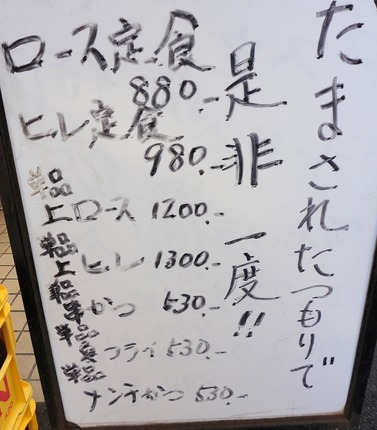 たまされたつもりで
是非一度!!
ロース定食
880.-
ヒレ定食
980.-
単品
上ロース 1200.-
単品
上ヒレ 1300.-
単品
串かつ 530.-
単品
フライ 530.-
単品
メンチかつ 530.-